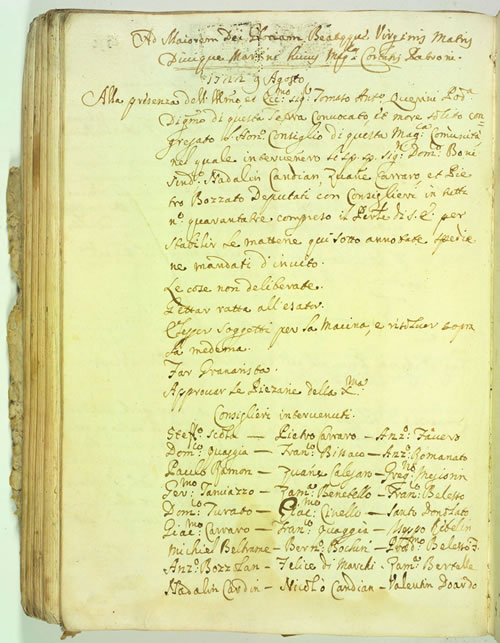 Ad Maiorem Dei Gloriam Beatæque Virginis Matris
Divique Martini huius Mag.
9 Agosto
Alla presenza dell' Ill.mo et Ecc.mo Sig.r Tomaso Ant.o Querini Pod.a
Dig.mo di questa Terra Convocato et more solito con
gregato l'Hon. Conseglio di questa Mag.ca Comunità
nel quale intervenero li sp. sp. Sig.ri Dom.o
Sind.o Nadalin Candian, Zuane Carraro, et Pie
tro Bozzato Deputati, con Consiglieri in tutti
n.o quarantatre, compreso il
stabilir le materie qui sotto annotate spedite
ne mandati d'invito.
Le cose non deliberate.
Gettar ratta all' esator.
Elegger Soggetti per la Macina, e risolver sopra
la medema.
Far Granarista.
Approvar le Piezarie della
Consiglieri intervenuti.
Stef.o Scola — Pietro Carraro — Anz.o Favero
Dom.co Quaggia — Fran.co Bissaco — Anz.o Romanato
Paulo Ramon — Zuane
Ger.mo — Zam.a Benetello — Fran.co Belesso
Dom.o Turato — Giac.mo Cinello — Santo Donolato
Giac.mo Carraro — Fran.co Quaggia — Iseppo
Michiel Beltrame — Bern.o — Belesso
Anz.o Bozzolan — Felice di Marchi — Zam.a Bertelle
Nadalin Cardin — Nicolò Candian — Valentin Doardo